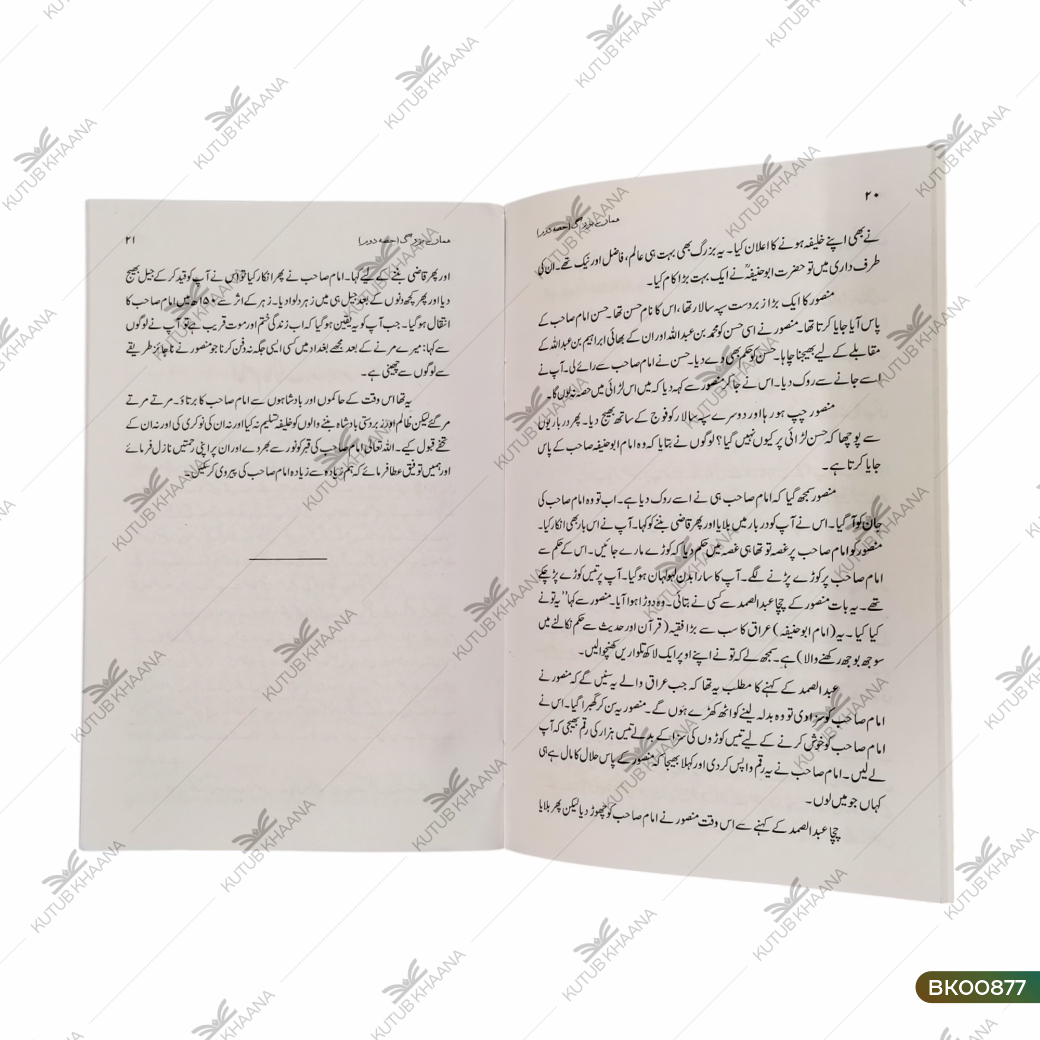 ۲۰
ہمارے بزرگ (حصہ دوم)
نے بھی اپنے خلیفہ ہونے کا اعلان کیا۔ یہ بزرگ بھی بہت ہی عالم، فاضل اور نیک تھے۔ ان کی
طرف داری میں تو حضرت ابوحنیفہؒ نے ایک بہت بڑا کام کیا۔
منصور کا ایک بڑا زبردست سپہ سالار تھا، اس کا نام حسن تھا۔ حسن امام صاحب کے
پاس آیا جایا کرتا تھا۔ منصور نے اسی حسن کو محمد بن عبداللہ اور ان کے بھائی ابراہیم بن عبداللہ کے
مقابلے کے لیے بھیجنا چاہا۔ حسن کو حکم بھی دے دیا۔ حسن نے امام صاحب سے رائے لی۔ آپ نے
اسے جانے سے روک دیا۔ اس نے جا کر منصور سے کہہ دیا کہ میں اس لڑائی میں حصہ نہ لوں گا۔
منصور چپ ہو رہا اور دوسرے سپہ سالار کو فوج کے ساتھ بھیج دیا۔ پھر درباریوں
سے پوچھا کہ حسن لڑائی پر کیوں نہیں گیا؟ لوگوں نے بتایا کہ وہ امام ابوحنیفہ صاحب کے پاس
جایا کرتا ہے۔
منصور سمجھ گیا کہ امام صاحب ہی نے اسے روک دیا ہے۔ اب تو وہ امام صاحب کی
جان کو آ گیا۔ اس نے آپ کو دربار میں بلایا اور پھر قاضی بننے کو کہا۔ آپ نے اس بار بھی انکار کیا۔
منصور کو امام صاحب پر غصہ تو تھا ہی غصہ میں حکم دیا کہ کوڑے مارے جائیں۔ اس کے حکم سے
امام صاحب پر کوڑے پڑنے لگے۔ آپ کا سارا بدن لہولہان ہو گیا۔ آپ پر تیس کوڑے پڑ چکے
تھے۔ یہ بات منصور کے چچا عبدالصمد سے کسی نے بتائی۔ وہ دوڑا ہوا آیا۔ منصور سے کہا ’’یہ تو نے
کیا کیا۔ یہ (امام ابوحنیفہ) عراق کا سب سے بڑا فقیہ (قرآن اور حدیث سے حکم نکالنے میں
سوجھ بوجھ رکھنے والا) ہے۔ سمجھ لے کہ تو نے اپنے اوپر ایک لاکھ تلواریں کھنچوا لیں۔
عبدالصمد کے کہنے کا مطلب یہ تھا کہ جب عراق والے یہ سنیں گے کہ منصور نے
امام صاحب کو سزا دی تو وہ بدلہ لینے کو اٹھ کھڑے ہوں گے۔ منصور یہ سن کر گھبرا گیا۔ اس نے
امام صاحب کو خوش کرنے کے لیے تیس کوڑوں کی سزا کے بدلے تیس ہزار کی رقم بھیجی کہ آپ
لے لیں۔ امام صاحب نے یہ رقم واپس کر دی اور کہلا بھیجا کہ منصور کے پاس حلال کا مال ہے ہی
کہاں جو میں لوں۔
چچا عبدالصمد کے کہنے سے اس وقت منصور نے امام صاحب کو چھوڑ دیا لیکن پھر بلایا
ہمارے بزرگ (حصہ دوم)
۲۱
اور پھر قاضی بننے کے لیے کہا۔ امام صاحب نے پھر انکار کیا تو اس نے آپ کو قید کر کے جیل بھیج
دیا اور پھر کچھ دنوں کے بعد جیل ہی میں زہر دلوا دیا۔ زہر کے اثر سے ۱۵۰ھ میں امام صاحب کا
انتقال ہو گیا۔ جب آپ کو یہ یقین ہو گیا کہ اب زندگی ختم اور موت قریب ہے تو آپ نے لوگوں
سے کہا: میرے مرنے کے بعد مجھے بغداد میں کسی ایسی جگہ نہ دفن کرنا جو منصور نے ناجائز طریقے
سے لوگوں سے چھینی ہے۔
یہ تھا اس وقت کے حاکموں اور بادشاہوں سے امام صاحب کا برتاؤ۔ مرتے مرتے
مر گئے لیکن ظالم اور زبردستی بادشاہ بننے والوں کو خلیفہ تسلیم نہ کیا اور نہ ان کی نوکری کی اور نہ ان کے
تحفے قبول کیے۔ اللہ تعالیٰ امام صاحب کی قبر کو نور سے بھر دے اور ان پر اپنی رحمتیں نازل فرمائے
اور ہمیں توفیق عطا فرمائے کہ ہم زیادہ سے زیادہ امام صاحب کی پیروی کر سکیں۔
KUTUB KHAANA
BK00877